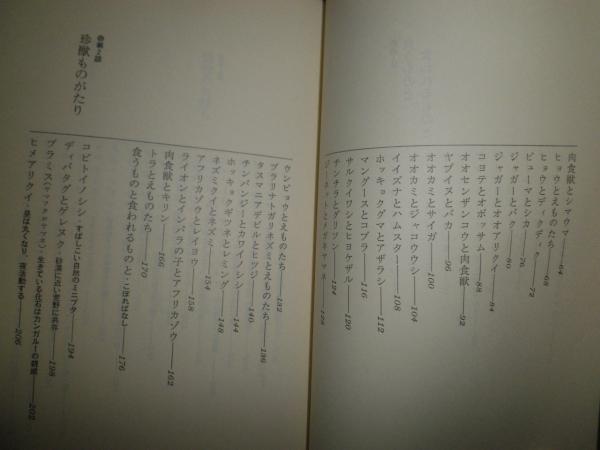 肉食獣とシマウマ——64
ヒョウとえものたち——68
ヒョウとディクディク——72
ピューマとシカ——76
ジャガーとバク——80
ジャガーとオオアリクイ——84
コヨテとオポッサム——88
オオセンザンコウと肉食獣——92
ヤブイヌとパカ——96
オオカミとサイガ——100
オオカミとジャコウウシ——104
イイズナとハムスター——108
ホッキョクグマとアザラシ——112
マングースとコブラ——116
サルクイワシとヒヨケザル——120
チンチラとグリソン——124
ジェネットとメガネヤマネ——128
ウンピョウとえものたち——132
ブラリナトガリネズミとえものたち——136
タスマニアデビルとヒツジ——140
チンパンジーとカワイノシシ——144
ホッキョクギツネとレミング——148
ネズミクイとネズミ——154
アフリカゾウとレイヨウ——158
ライオンとインパラの子とアフリカゾウ——162
肉食獣とキリン——166
トラとえものたち——170
食うものと食われるものと こぼればなし——176
珍獣ものがたり
コビトイノシシ・すばしこい自然のミニブタ——194
ディバタグとゲレヌク・砂漠に近い荒野に共存——198
ブラミス・生きている化石はカンガルーの親戚——202
ヒメアリクイ・昼は丸くなり、夜活動する——206